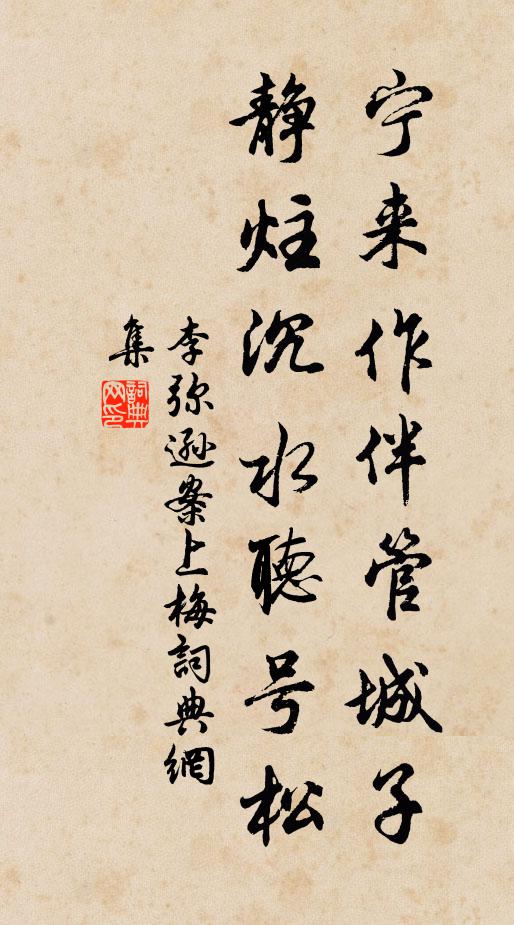 宁来作伴管城子
静炷沉水聽号松
李弥遜案上梅詞典網
集
詞典网印